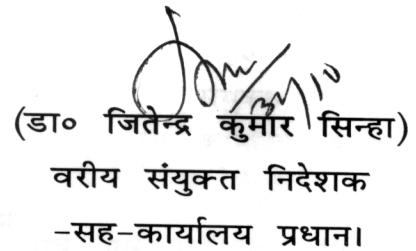 (डा० जितेन्द्र कुमार सिन्हा)
वरीय संयुक्त निदेशक
-सह-कार्यालय प्रधान।